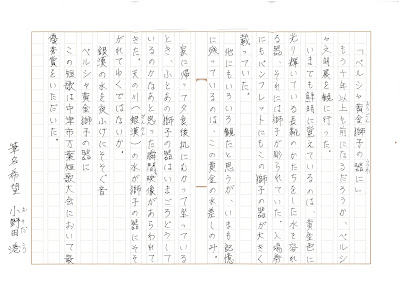 「ペルシャ黄金獅子の器に」
もう十年以上も前になるだろうか、ペルシ
ャ文明展を観に行った。
いまでも鮮明に覚えているのは、黄金色に
光り輝いている長靴のかたちをした水を容れ
る器、それには獅子が彫られていた。入場券
にもパンフレットにもこの獅子の器が大きく
載っていた。
他にもいろいろ観たと思うが、いまも記憶
に残っているのは、この黄金の水差しのみ。
家に帰って夕食後机にむかって坐っている
とき、ふとあの獅子の器は、いまごろどうして
いるのかなあと思った瞬間映像があらわれて
きた。天の川(銀漢)の水が獅子の器にそそ
がれてゆくではないか。
銀漢の水を夜ふけにそそぐ音
ペルシャ黄金獅子の器に
この短歌は中津市万葉短歌大会において最
優秀賞をいただいた。
筆名希望 小野田滉